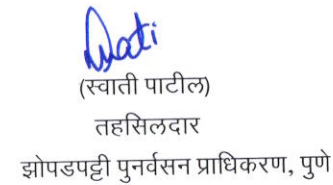 Swati
(स्वाती पाटील)
तहसिलदार
झोपडपट्टी पुनर्वसन प्राधिकरण, पुणे